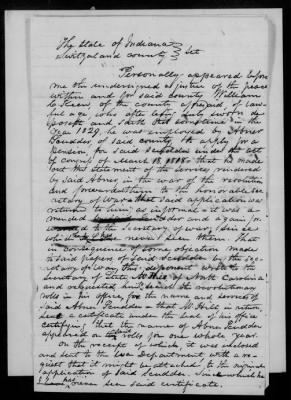 The State of Indiana }
Switzerland County } Sct
Personally appeared before
me the undersigned a justice of the peace
within and for said county William
C. Keen, of the county aforesaid, of law-
ful age who after being duly sworn de-
poseth and saith that sometime in the
year 1829, he was employed by Abner
Scudder, of said county to apply for a
pension, for said Scudder under the act
of congress of March 18, 1818 that he made
out the statement of the service rendered
by said Abner in the war of the revolution
and forwarded them to the honorable sec-
retary of War that said application was
returned to him, as informal it was a-
mended Scudder and again for-
warded to the Secretary of war, since
which he has never seen them that
in consequence of some objection made
to said papers of said Scudder by the sec-
retary of War, this deponent wrote to the
Secretary of State of North Carolina
and requested him, search the revolutionary
rolls in his office, for the name and services of
said Abner Scudder that Wm Hill in return,
sent a certificate under the seal of his office
certifying that the name of Abner Scudder
appeared on the said rolls for one whole year.
On the receipt of which, it was enclosed
and sent to the War Department with a re-
quest that it might be attached to the original
application of said Scudder, since which he
has never seen said certificate.